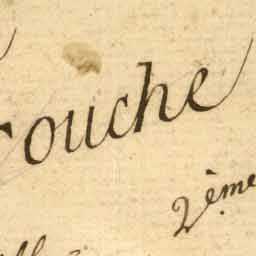 ouche
2ème